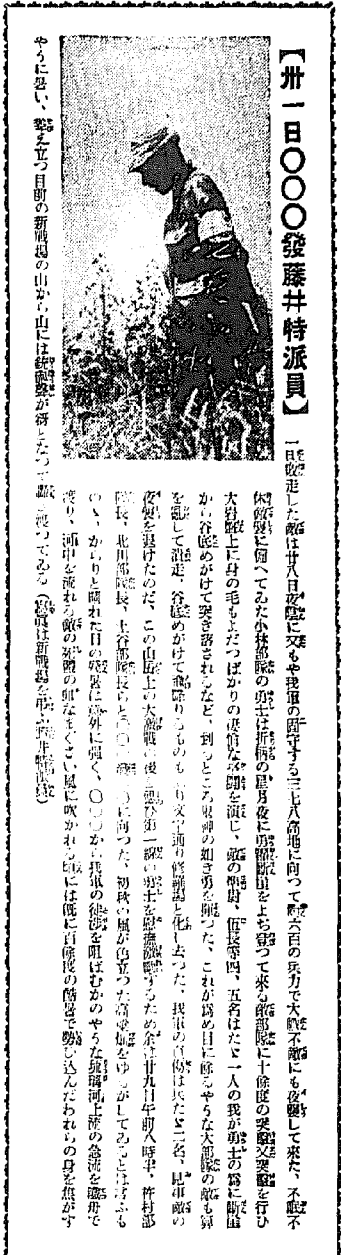 【卅一日〇〇〇發藤井特派員】
一旦敗走した敵は廿八日夜陰に又もや我軍の固守する三七八高地に向つて約六百の兵力で大膽不敵にも夜襲して來た、不眠不
休敵襲に備へてゐた小林部隊の勇士は折柄の星月夜に勇躍斷崖をよぢ登つて來る敵部隊に十餘度の突擊又突擊を行ひ
大岩盤上に身の毛もよだつばかりの凄愴な格鬪を演じ、敵の中尉、伍長等四、五名はたゞ一人の我が勇士の爲に斷崖
から谷底めがけて突き落されるなど、到るところ鬼神の如き勇を揮つた、これが爲め目に餘るやうな大部隊の敵も算
を亂して潰走、谷底めがけて飛降りるものもあり文字通り修羅場と化し去つた、我軍の負傷は兵たゞ二名、見事敵の
夜襲を退けたのだ、この山岳上の大激戰の後を偲び第一線の勇士を慰撫激勵するため余は廿九日午前八時半、柞村部
隊長、北川部隊長、土谷部隊長らと〇〇を發〇〇に向つた、初秋の風が色立つた高粱畑をゆるがしてゐるとは言ふも
のゝ、からりと晴れた日の殘暑は意外に強く、〇〇〇から我軍の徒涉を阻ばむかのやうな琉璃河上流の急流を渡舟で
渡り、河中を流れる敵の死體の卵なまぐさい風に吹かれる頃には既に百餘度の酷暑で勢ひ込んだわれらの身を焦がす
やうに暑い、聳え立つ目前の新戰場の山から山には銃砲聲が殷々となつて轟き渡つてゐる（寫眞は新戰場を弔ふ酒井特派員）